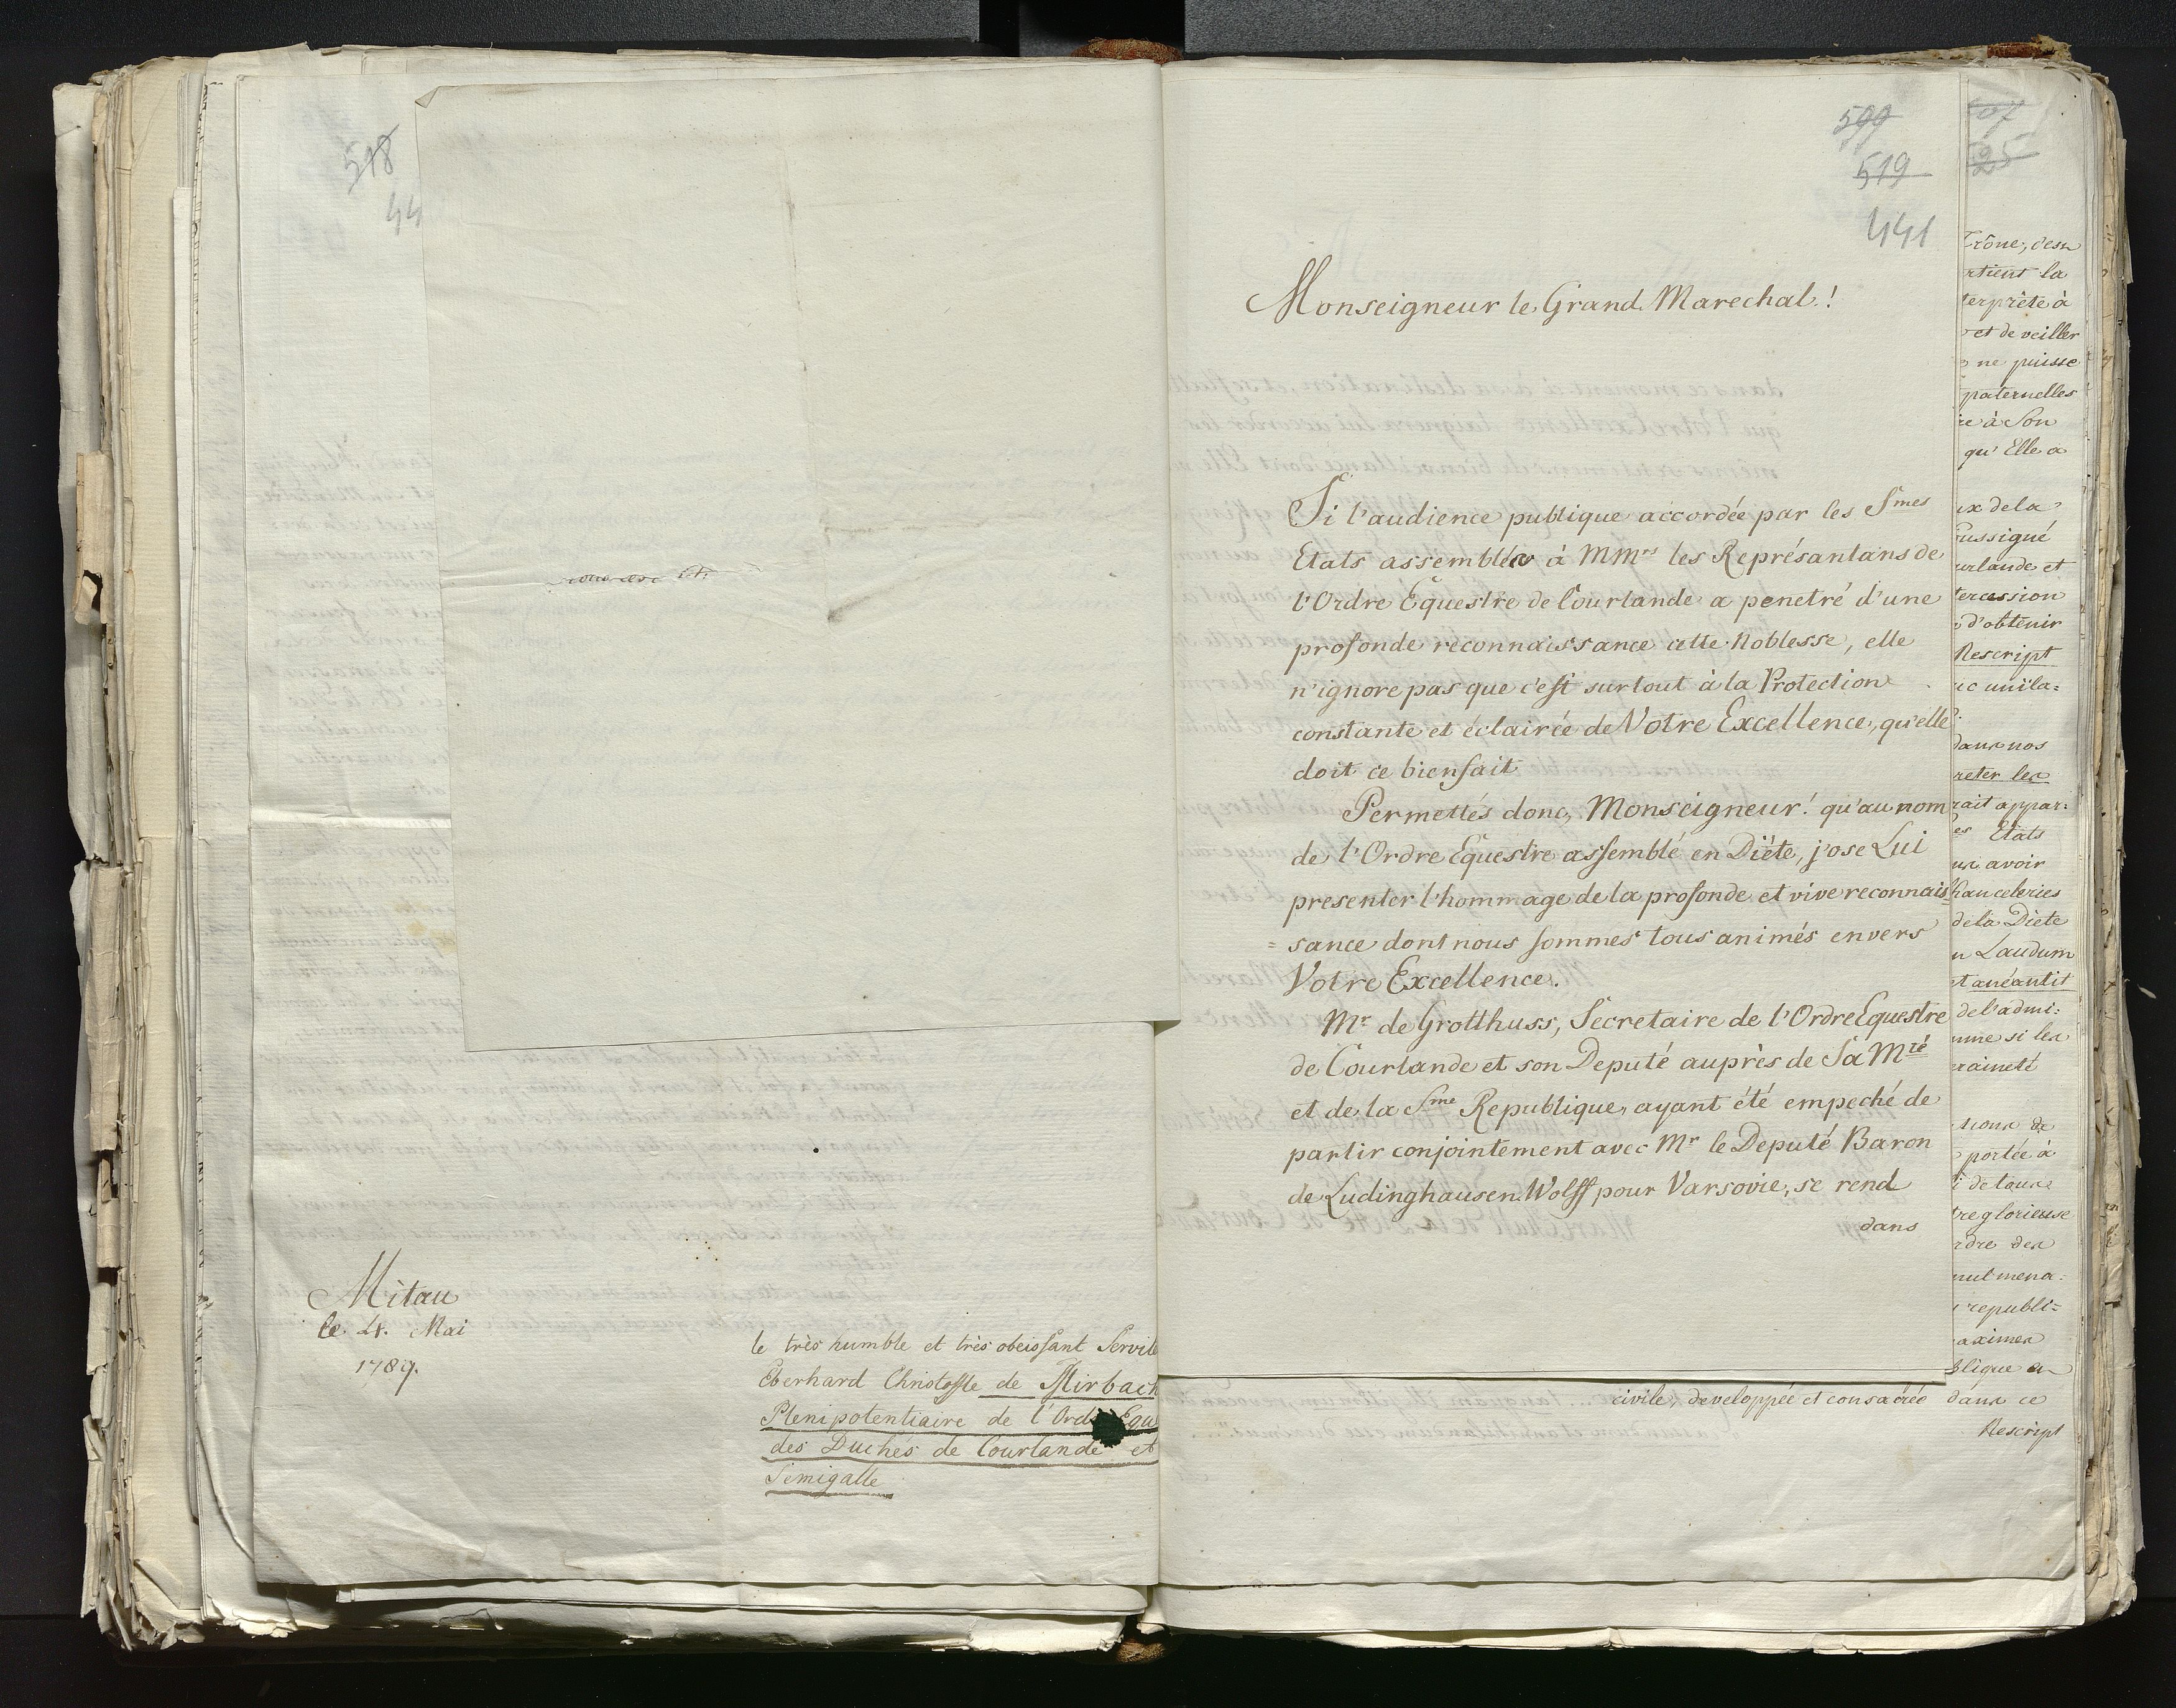 518
44
Mitau
le 4. Mai
1789.
le très humble et très obeissant Servite
Eberhard Christofle de Mirbach
Plenipotentiaire de l'Ord Equ
des Duchés de Courlande et
Semigalle
599
519
441
Monseigneur le Grand Marechal!
Si l'audience publique accordée par les Smes
Etats assemblés à MMrs les Représantans de
l'Ordre Equestre de Courlande a penetré d'une
profonde reconnaissance cette Noblesse, elle
n'ignore pas que c'est surtout à la Protection
constante et éclairée de Votre Excellence, qu'elle
doit ce bienfait
Permettés donc, Monseigneur! qu'au nom
de l'Ordre Equestre assemblé en Diëte, j'ose Lui
presenter l'hommage de la profonde et vive reconnais=
=sance dont nous sommes tous animés envers
Votre Excellence.
Mr de Grotthuss, Secretaire de l'Ordre Equestre
de Courlande et son Deputé auprès de Sa Mté
et de la Sme Republique, ayant été empeché de
partir conjointement avec Mr le Deputé Baron
de Ludinghausen Wolff pour Varsovie, se rend
dans
07
525
Trône, c'est
rtient la
terprète à
et de veiller
ne puisse
paternelles
re à Son
qu'Elle a
ux de la
ussigué
urlande et
tercession
d'obtenir
Rescript
uc unila=
dans nos
reter les
rait appar:
es Etats
avoir
hanceleries
de la Diete
n Laudum
et anéantit
de l'admi:
me si les
raineté
portée à
i de tous
tre glorieuse
rdre des
nul mena:
republi=
aximes
blique en
civile, developpée et consacrée dans ce
Rescript